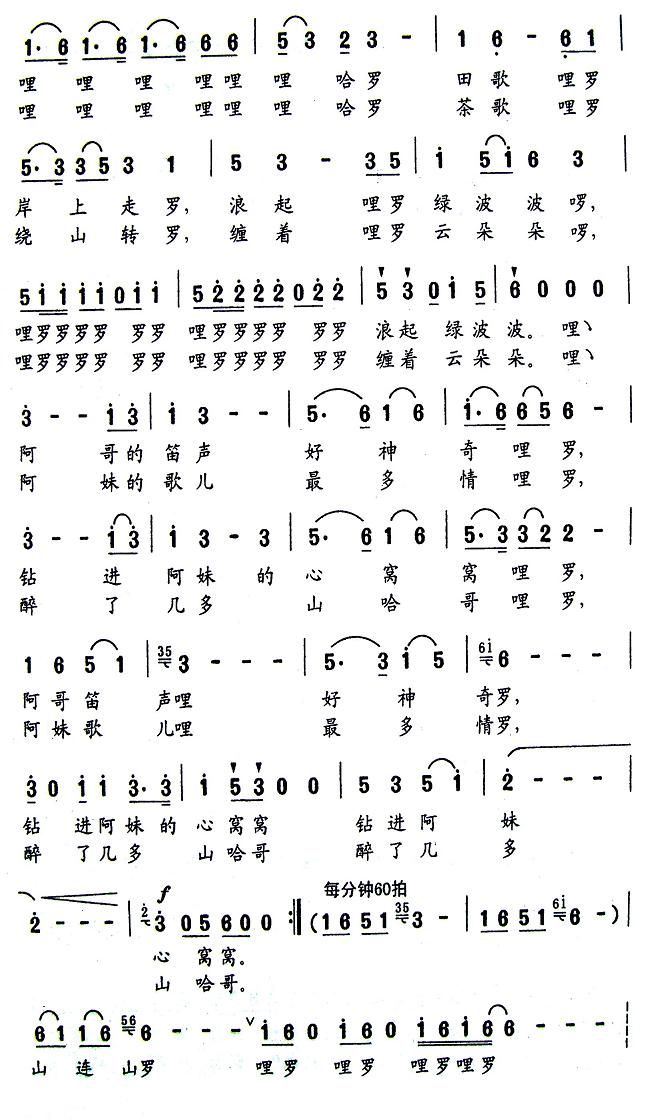 1· 6 1· 6 1· 6 6 6 | 5 3 2 3 - | 1 6 - 6 1 |
哩 哩 哩 哩哩 哩 哈罗 田歌 哩罗
哩 哩 哩 哩哩 哩 哈罗 茶歌 哩罗
5· 3 3 5 3 1 | 5 3 - 3 5 | i 5 i 6 3 |
岸 上 走 罗, 浪 起 哩罗 绿 波 波 啰,
绕 山 转 罗, 缠 着 哩罗 云 朵 朵 啰,
5 i i i i 0 i i | 5 2 2 2 2 0 2 2 | 5 3 0 i 5 | 6 0 0 0 |
哩罗罗罗罗 罗罗 哩罗罗罗罗 罗罗 浪起 绿波 波。 哩
哩罗罗罗罗 罗罗 哩罗罗罗罗 罗罗 缠着 云朵 朵。 哩
3 - - i 3 | i 3 - - | 5· 6 1 6 | i· 6 6 5 6 - |
阿 哥的 笛声 好 神 奇 哩 罗,
阿 妹的 歌儿 最 多 情 哩 罗,
3 - - i 3 | i 3 - 3 | 5· 6 1 6 | 5· 3 3 2 2 - |
钻 进 阿妹 的 心 窝 窝 哩 罗,
醉 了 几多 山 哈 哥 哩 罗,
1 6 5 1 | 35 3 - - - | 5· 3 i 5 | 6i 6 - - - |
阿哥笛 声哩 好 神 奇罗,
阿妹歌 儿哩 最 多 情罗,
3 0 i i 3· 3 | i 5 3 0 0 | 5 3 5 i | 2 - - - |
钻 进阿妹 的 心 窝窝 钻 进阿 妹
醉 了几多 山 哈哥 醉 了几 多
f 每分钟60拍
2 - - - | 2 3 0 5 6 0 0 :‖ ( 1 6 5 1 35 3 - | 1 6 5 1 6i 6 - )
心 窝 窝。
山 哈 哥。
6 1 1 6 56 6 - - - ∨ i 6 0 i 6 0 i 6 i 6 6 - - -
山 连 山罗 哩罗 哩罗 哩罗哩罗